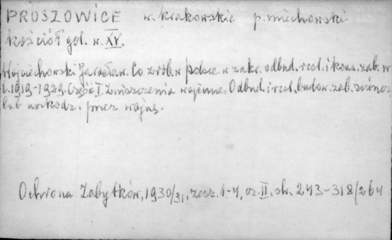 PROSZOWICE w. krakowskie p. miechowski
kościół got. w. XV.
Wojciechowski Jarosław. Co zrob. w Polsce w zakr. odbud. rest. i kons. zab. w
l. 1919-1929. Część I Zniszczenia wojenne. Odbud. i rest. budow. zab. zniszcz.
lub uszkodz. przez wojnę.
Ochrona Zabytków, 1930/31, zesz. 1-4, cz. II. str. 243-318/264